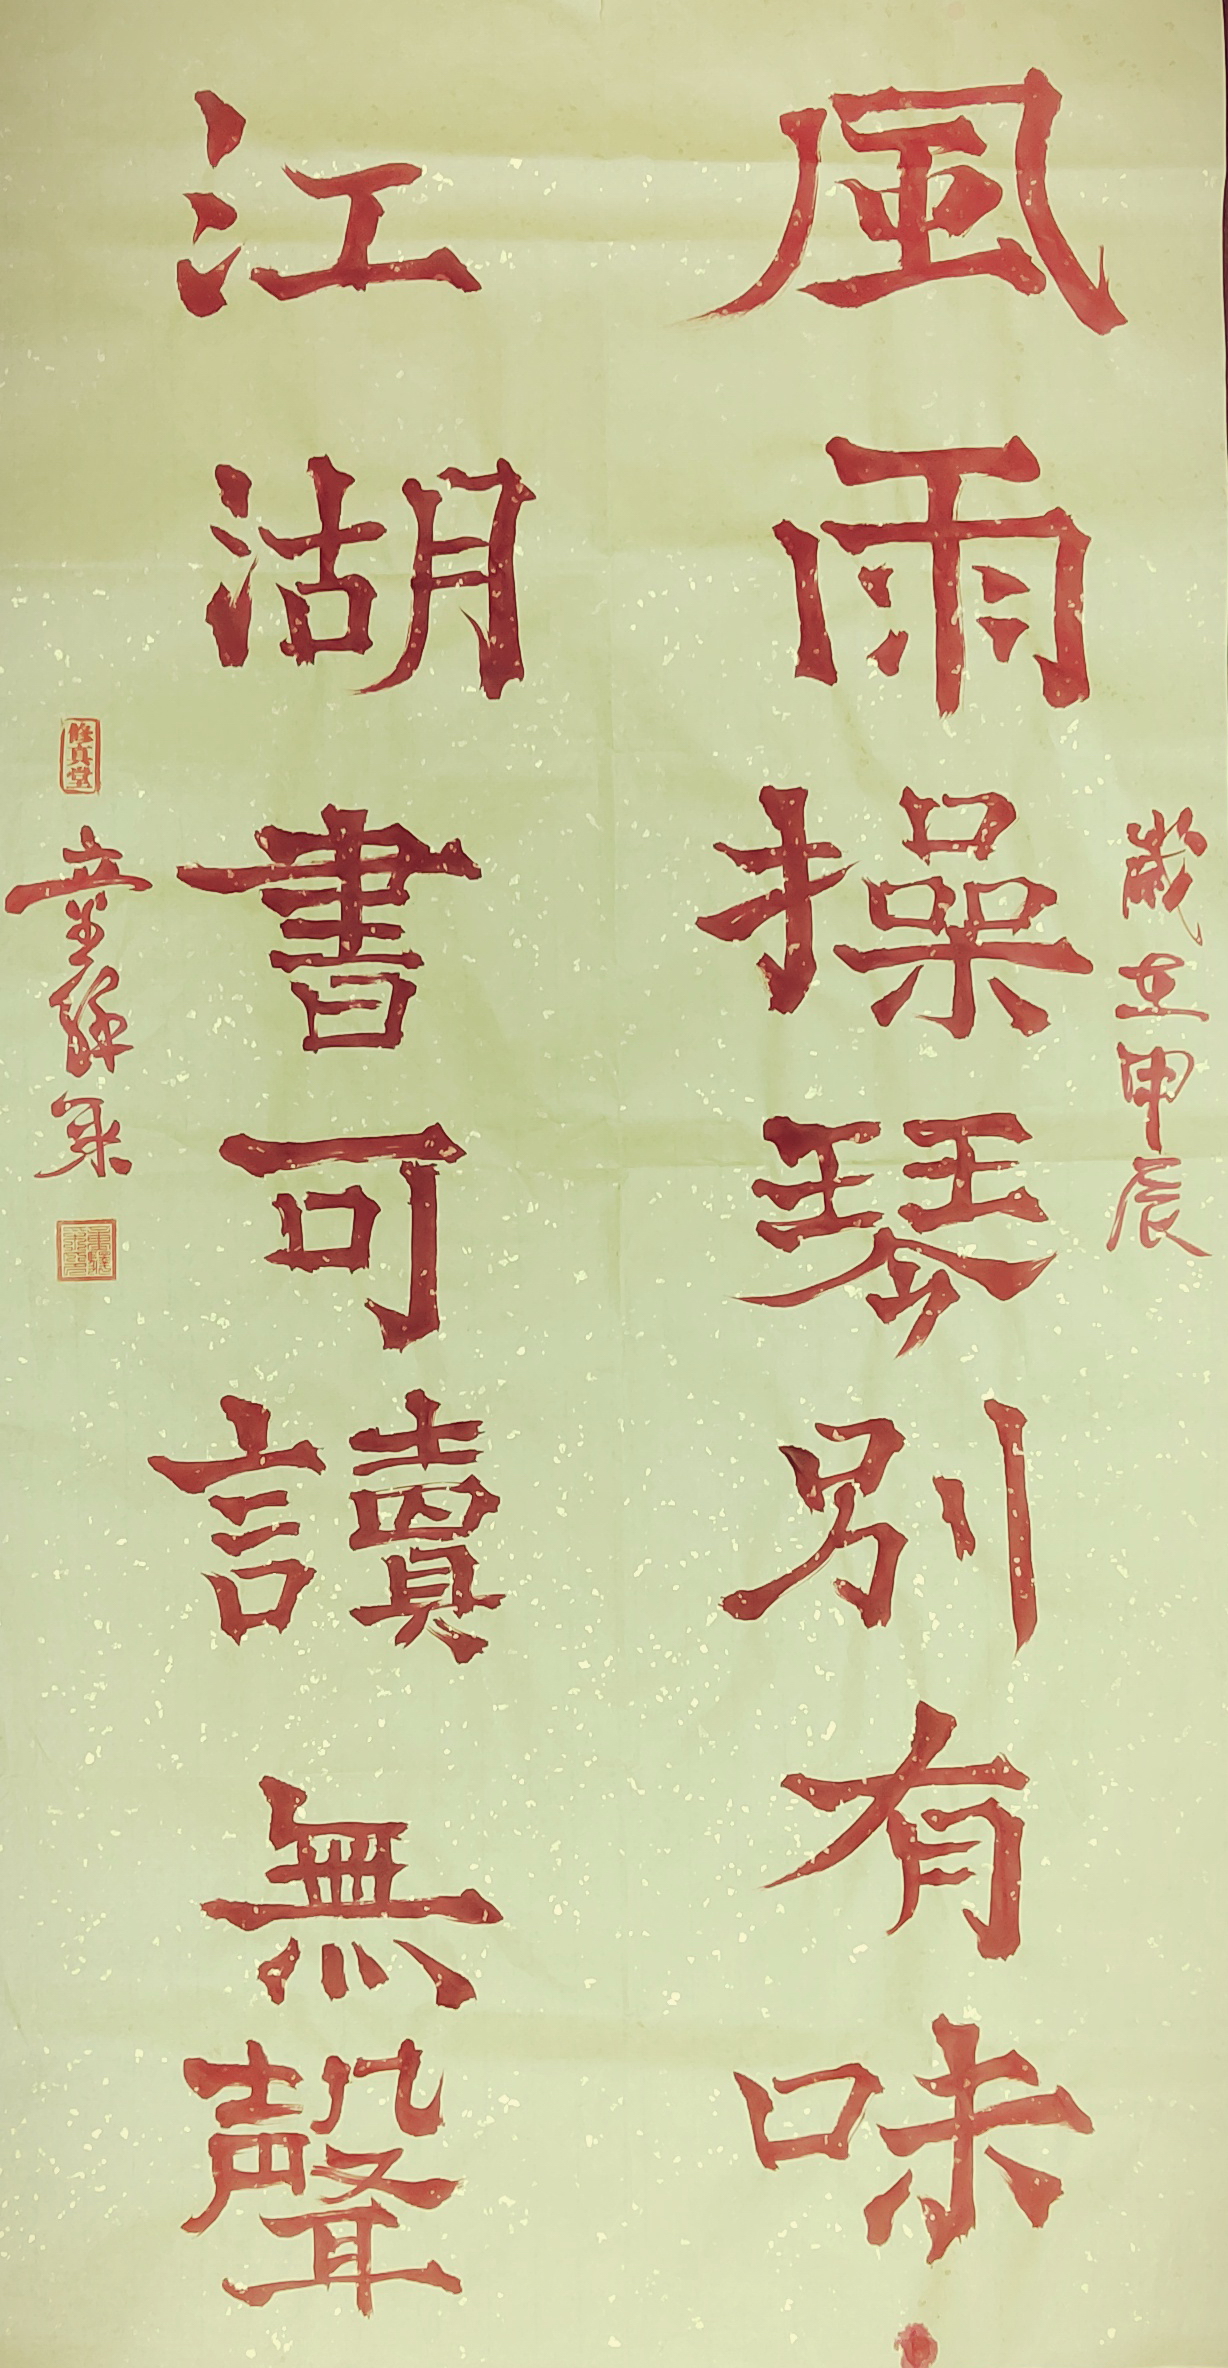 歲在甲辰
風雨操琴別有味
江湖書可讀無聲
修真堂